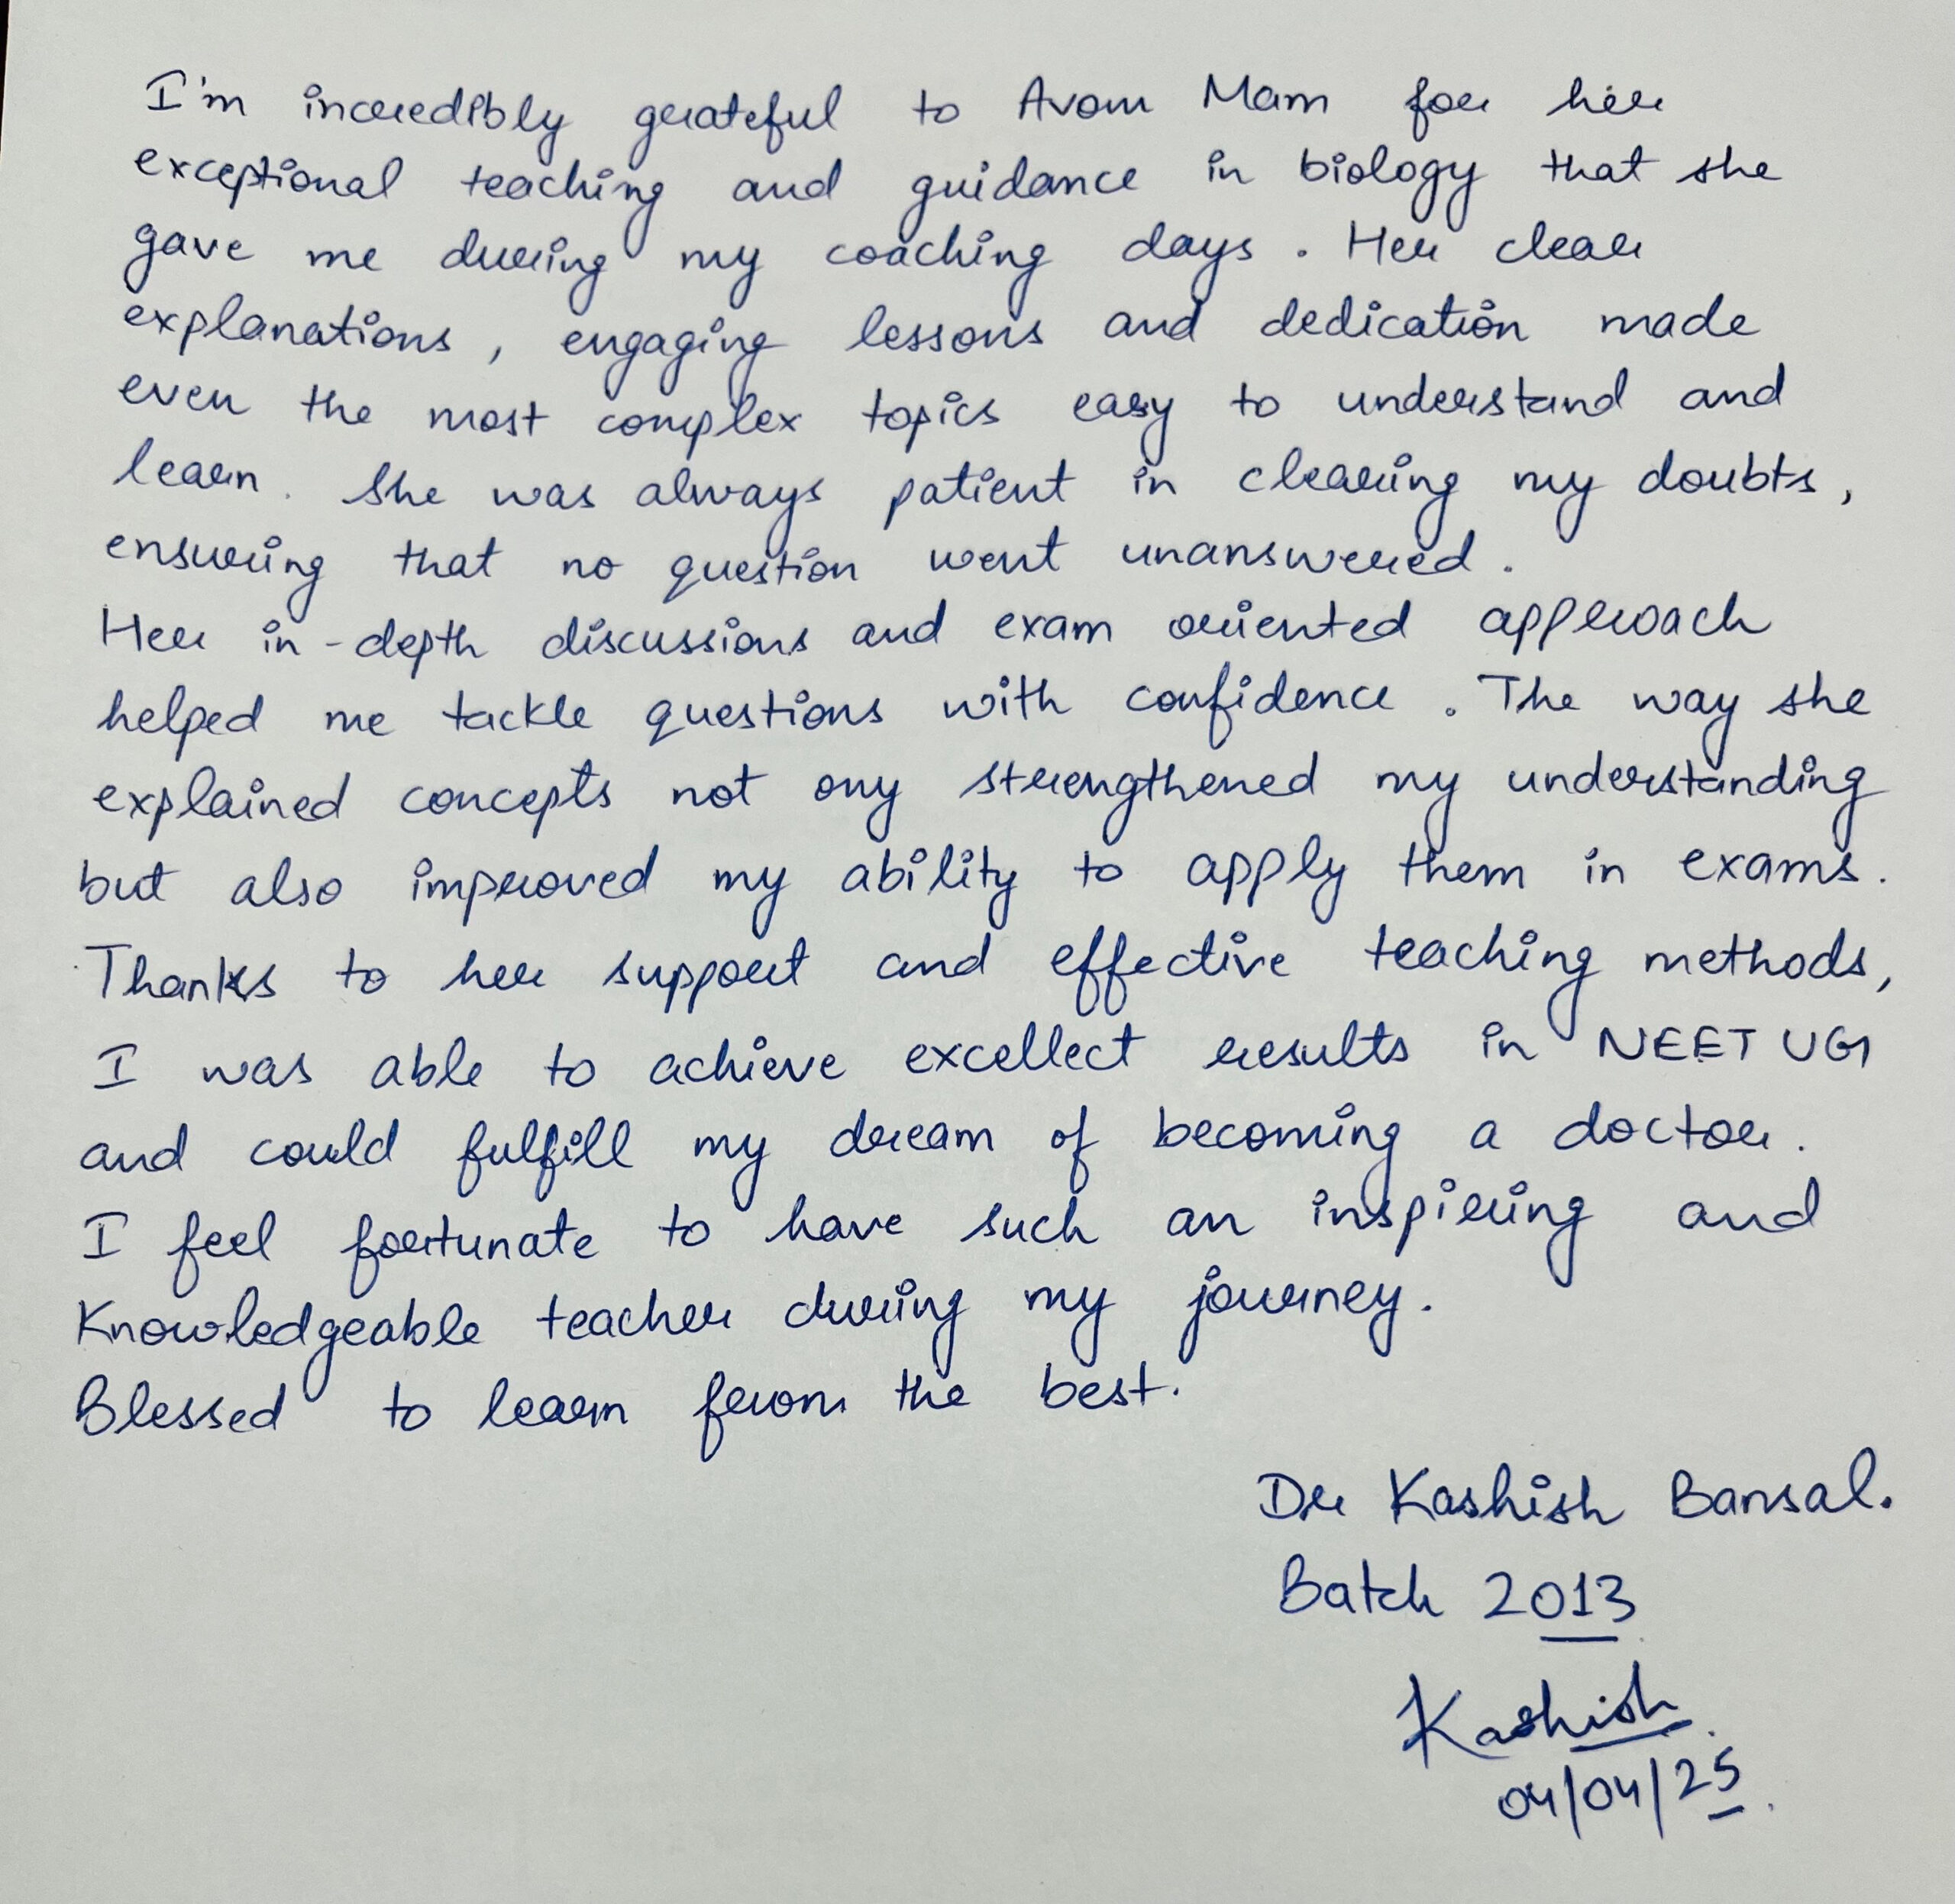 I'm incredibly grateful to Avom Mam for her
exceptional teaching and guidance in biology that she
gave me during my coaching days. Her clear
explanations, engaging lessons and dedication made
even the most complex topics easy to understand and
learn. She was always patient in clearing my doubts,
ensuring that no question went unanswered.
Her in-depth discussions and exam oriented approach
helped me tackle questions with confidence. The way she
explained concepts not ony strengthened my understanding
but also improved my ability to apply them in exams.
Thanks to her support and effective teaching methods,
I was able to achieve excellect results in NEET UG
and could fulfill my dream of becoming a doctor.
I feel fortunate to have such an inspiring and
Knowledgeable teacher during my journey.
Blessed to learn from the best.
Dr Kashish Bansal.
Batch 2013
Kashish
04/04/25